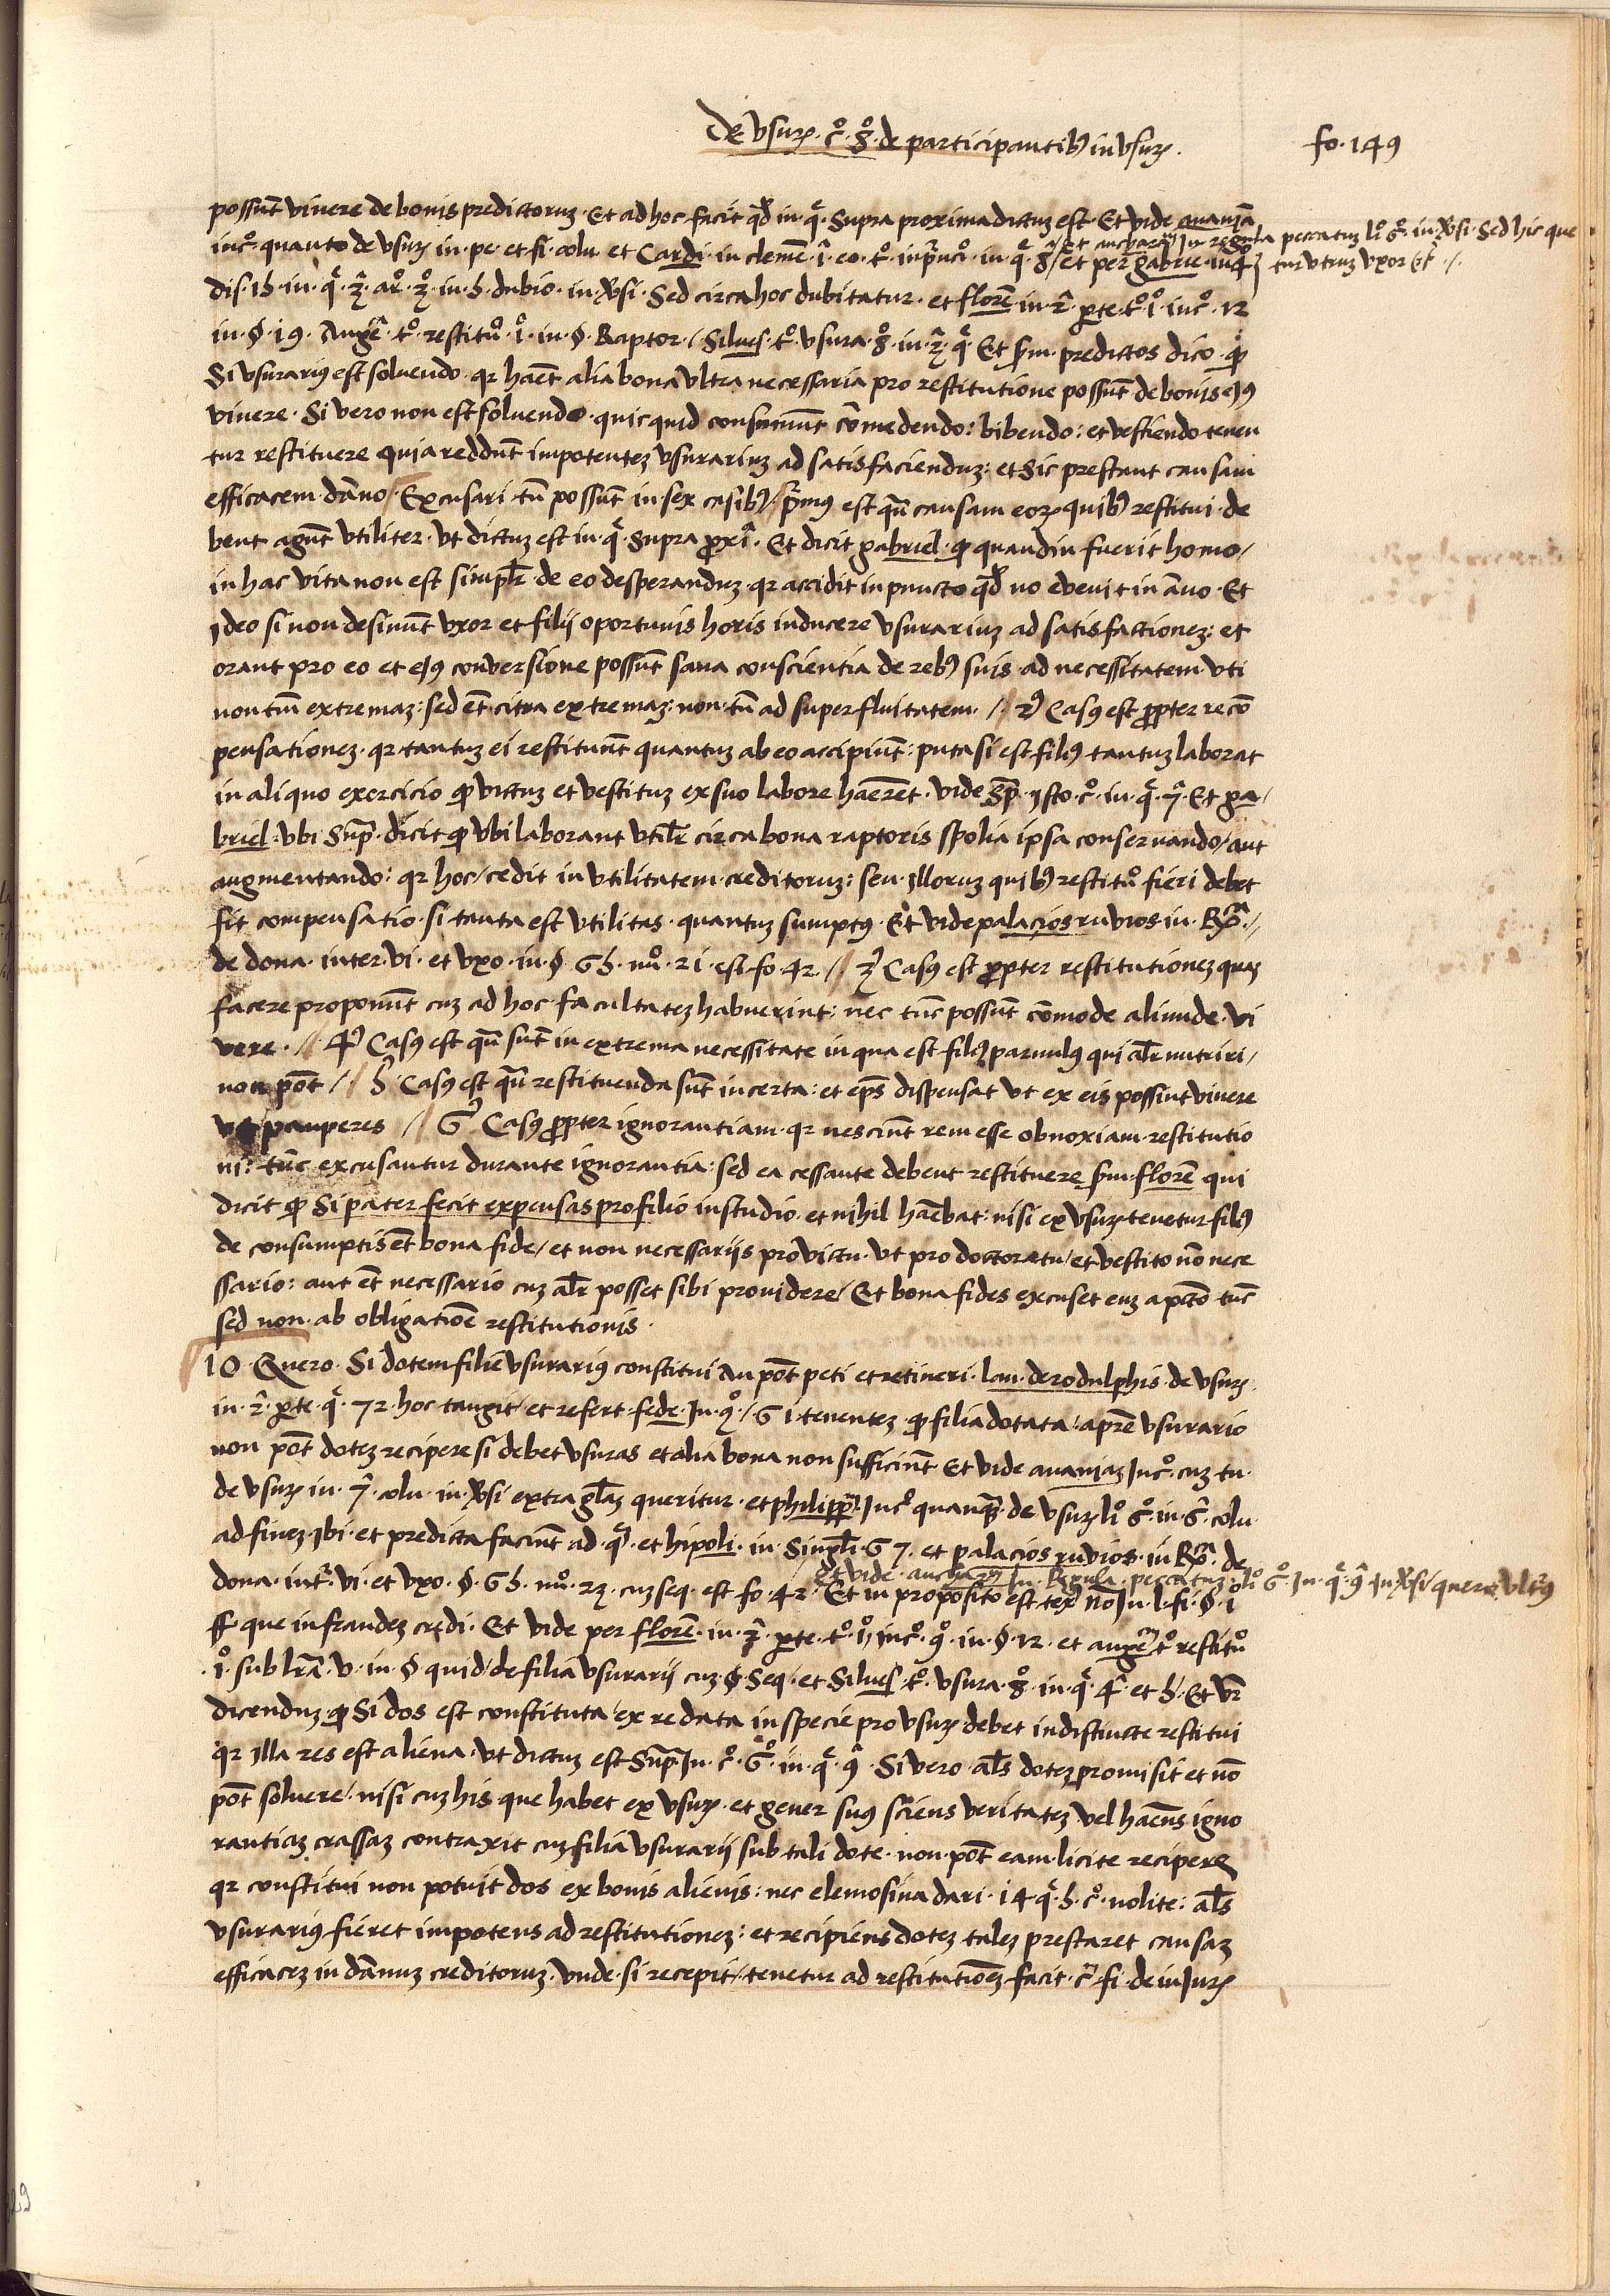 De vsurꝝ. cͦ. 8ͦ. de participantibꝰ in vsurꝝ.
fo. 149
possūt viuere de bonis predictoruꝫ. Et ad hoc facit qđ in. q̄. supra proxima dictuꝫ est. Et vide ananiā
in cͦ. quanto de vsurꝝ in. pe. et fi. colu. et Cardi. in clemē. i. eo. tͦ. in prīncͦ. in. q̄. 8 / et per gabrie. in 4
/ Et ancharaꝫ In regula peccatuꝫ liͦ 6ͦ. in ꝟsi. Sed hic que
tur vtruꝫ vxor etͨ.
dis. 15. in. q̄. 2. arͦ. 3ͦ. in. 5. dubio. in. ꝟsi. Sed circa hoc dubitatur. et florē in. 2. ꝑte. tͦ. i. in cͦ. 12
in. §. 19. Angeͣ. tͦ. restituͦ. iͦ. in. §. Raptor. / Silues. tͦ. vsura. 8ͦ. in. 3. q̄. Et ẜm. predictos dico. ꝙ
Si vsurariꝰ est soluendo. qr hāēt alia bona vltra necessaria pro restitutione possūt de bonis eiꝰ
viuere. Si vero non est soluendo. quicquid consumūt cōmedendo: bibendo: et vestiendo tenen
tur restituere quia reddūt impotenteꝫ vsurariuꝫ ad satisfacienduꝫ: et sic prestant causam
efficacem dāno / Excusari tn̄ possūt in sex casibꝰ // prīmꝰ est qn̄ causam eorꝝ quibꝰ restitui de
bent agūt vtiliter. vt dictuꝫ est in. q̄. supra ꝓxi. Et dicit gabriel. ꝙ quandiu fuerit homo /
in hac vita non est simplr̄ de eo desperanduꝫ. qr accidit in puncto qđ nō evenit in āno. Et
ideo si non desinūt vxor et filij oportunis horis inducere vsurariuꝫ ad satisfactioneꝫ: et
orant pro eo et eiꝰ conversione possūt sana conscientia de rebꝰ suis ad necessitatem vti
non tm̄ extremaꝫ: sed et̄ citra extremaꝫ: non tn̄ ad superfluitatem. // 2ꝰ Casꝰ est ꝓpter recō
pensationeꝫ. qr tantuꝫ ei restituūt quantuꝫ ab eo accipiūt: puta si est filiꝰ tantuꝫ laborat
in aliquo exercicio ꝙ victuꝫ et vestituꝫ ex suo labore hāērēt. vide Sp̄. isto. cͦ. in. q̄. 7. Et ga /
briel. vbi Sup̄. dicit ꝙ vbi laborant vtilr̄ circa bona raptoris spolia ipsa conseruando / aut
augmentando: qr hoc / cedit in vtilitatem creditoruꝫ: seu illoruꝫ quibꝰ restituͦ fieri debet
fit compensatio. si tanta est vtilitas. quantuꝫ sumptꝰ. Et vide palacios ruvios in. Rͣ. //
de dona. inter. vi. et vxo. in. §. 65. nuͦ. 21. est fo. 42. // 3ꝰ Casꝰ est ꝓpter restitutioneꝫ quaꝫ
facere proponūt cuꝫ ad hoc facultateꝫ habuerint: nec tūc possūt cōmode aliunde vi
vere. // 4ꝰ Casꝰ est qn̄ sūt in extrema necessitate in qua est filiꝰ paruulꝰ qui alr̄ nutriri /
non pōt // 5ꝰ Casꝰ est qn̄ restituenda sūt incerta: et ep̄s dispensat vt ex eis possint viuere
vt pauperes // 6ꝰ Casꝰ ꝓpter ignorantiam. qr nesciūt rem esse obnoxiam restitutio
ni: tūc excusantur durante ignorantia: sed ea cessante debent restituere ẜm florē qui
dicit ꝙ Si pater fecit expensas pro filio in studio. et nihil hāēbat: nisi ex vsurꝝ tenetur filiꝰ
de consumptis et̄ bona fide / et non necessarijs pro victu. vt pro doctoratu / et vestito nō nece
ssario: aut et̄ necessario cuꝫ alr̄ posset sibi prouidere / Et bona fides excuset euꝫ a pctō tūc
sed non ab obligatiōe restitutionis.
10. Quero. Si dotem filie vsurariꝰ constitui An pōt peti et retineri. lau. de rodulphis. de vsurꝝ.
in. 2. ꝑte. q̄. 72. hoc tangit / et refert fede. In. 9ͦ. / 61. tenenteꝫ ꝙ filia dotata / a pr̄e vsurario
non pōt doteꝫ recipere si debet vsuras et alia bona non sufficiūt Et vide ananiaꝫ In cͦ. cuꝫ tu.
de vsurꝝ in. 7. colu. in. ꝟsi extra gl̄aꝫ queritur. et philipp̄. In cͦ quanq̄. de vsurꝝ liͦ 6ͦ. in. 6. colu.
ad fineꝫ. ibi. et predicta faciūt ad. q̄. et hipoli. in. Singl̄i. 67. et palacios ruvios. in Rͣ. de
dona. intͬ. vi. et vxo. §. 65. nuͦ. 23. cuꝫ seq. est fo. 42. Et in proposito est tex nō In. l. fi. §. i
Et vide. ancharaꝫ In. Regula. peccatuꝫ. liͦ 6ͦ. In. q̄. 9. In ꝟsi quero vltiꝰ
ff que in fraudeꝫ credi. Et vide per florē. in. 2. ꝑte. tͦ. ij in cͦ. 9ͦ. in. §. 12. et angeͣ tͦ restituͦ
. iͦ. sub lr̄a. v. in. § quid / de filia vsurarij cuꝫ. §. Seq. et Silues. tͦ. vsura. 8ͦ. in. q̄. 4. et 5. Et vr̄
dicenduꝫ. ꝙ Si dos est constituta / ex re data in specie pro vsurꝝ debet indistincte restitui
qr illa res est aliena. vt dictuꝫ est Sup̄ In. cͦ. 6ͦ. in. q̄. 9. Si vero al̄s doteꝫ promisit et nō
pōt soluere / nisi cuꝫ his que habet ex vsurꝝ. et gener suꝰ sciens veritateꝫ vel hāēns igno
rantiaꝫ crassaꝫ contraxit cuꝫ filia vsurarij sub tali dote. non pōt eam licite recipere
qr constitui non potuit dos ex bonis alienis: nec elemosina dari. 14. q̄. 5. cͦ. nolite: al̄s
vsurariꝰ fieret impotens ad restitutioneꝫ: et recipiens doteꝫ taleꝫ prestaret causaꝫ
efficaceꝫ in dānuꝫ creditoruꝫ. vnde. si recepit / tenetur ad restitutiōeꝫ facit. cͦ. fi. de iniurꝝ